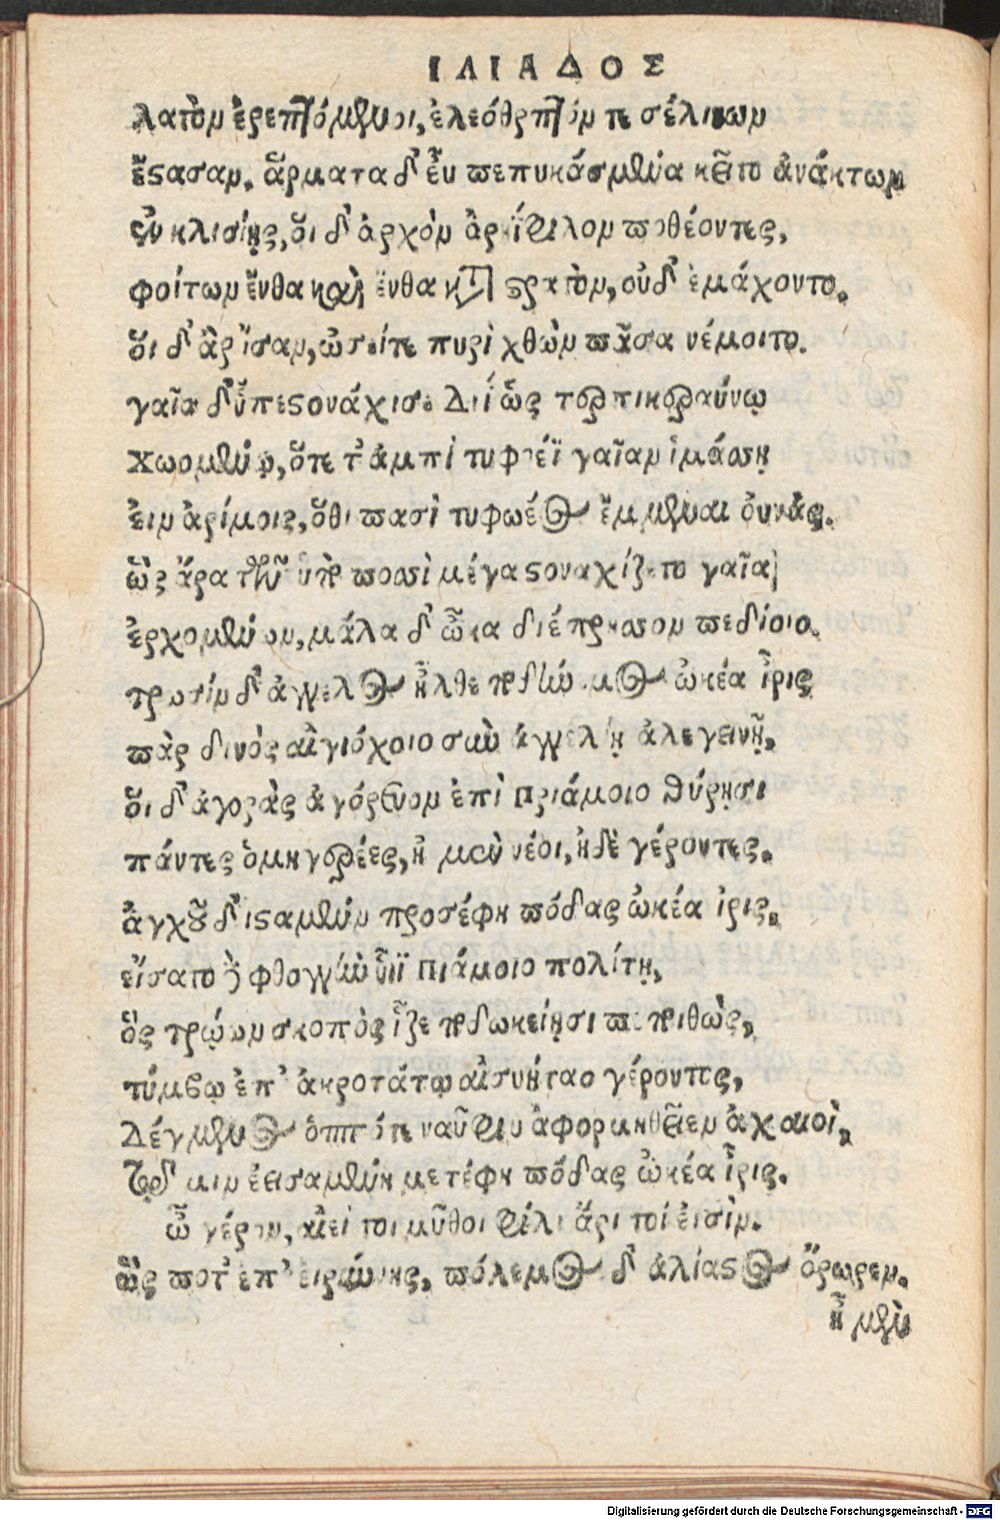 ΙΛΙΑΔΟΣ
λωτὸν ἐρεπτόμενοι, ἐλεόθρεπτόν τε σέλινον
ἕστασαν. ἅρματα δ' εὖ πεπυκάσμενα κεῖτο ἀνάκτων
ἐν κλισίῃς, οἱ δ' ἀρχὸν ἀρηΐφιλον ποθέοντες,
φοίτων ἔνθα καὶ ἔνθα κατὰ στρατὸν, οὐδ' ἐμάχοντο.
οἱ δ' ἂρ ἴσαν, ὡσείτε πυρὶ χθὼν πᾶσα νέμοιτο.
γαῖα δ' ὑπεστονάχιζε Διῒ ὣς τερπικεραύνῳ
χωομένῳ, ὅτε τ' ἀμπὶ τυφωέϊ γαῖαν ἱμάσσῃ
εἰν ἀρίμοις, ὅθι φασὶ τυφωέος ἔμμεναι εὐνάς.
ὣς ἄρα τῶν ὑπὸ ποσσὶ μέγα στοναχίζετο γαῖα
ἐρχομένων, μάλα δ' ὦκα διέπρησσον πεδίοιο.
τρωσὶν δ' ἄγγελος ἦλθε ποδήνεμος ὠκέα ἶρις
πὰρ διὸς αἰγιόχοιο σὺν ἀγγελίῃ ἀλεγεινῇ,
οἱ δ' ἀγορὰς ἀγόρευον ἐπὶ πριάμοιο θύρῃσι
πάντες ὁμηγερέες, ἠμὲν νέοι, ἠδὲ γέροντες.
ἀγχοῦ δ' ἱσταμένη προσέφη πόδας ὠκέα ἶρις,
εἴσατο δὲ φθογγὴν υἷϊ πιάμοιο πολίτῃ,
ὃς τρώων σκοπὸς ἷζε ποδωκείῃσι πεποιθὼς,
τύμβῳ ἐπ' ἀκροτάτῳ αἰσυήταο γέροντος,
Δέγμενος ὁππότε ναῦφιν ἀφορμηθεῖεν ἀχαιοὶ,
τῷ μιν ἐεισαμένη μετέφη πόδας ὠκέα ἶρις.
ὦ γέρον, αἰεί τοι μῦθοι φίλοι ἄκριτοί εἰσὶν.
ὥς ποτ' ἐπ' εἰρήνης, πόλεμος δ' ἀλίαστος ὄρωρεν.
ἦ μὲν